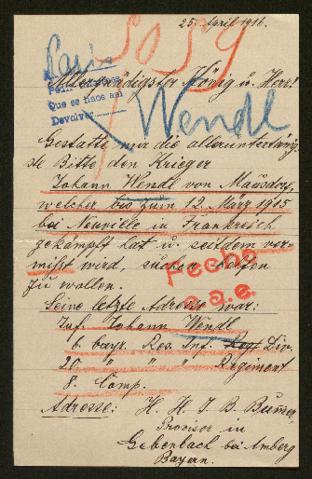 25. April 1916.
5059
Paris
Allergnädigster König u. Herr!
Que se hace así
Devolver
Wendl
Gestatte mir die alleruntertänig-
ste Bitte den Krieger
Johann Wendl von Mausdorf,
welcher bis zum 12. März 1915
bei Neuville in Frankreich
gekämpft hat u. seitdem ver-
mißt wird, suchen helfen
zu wollen.
Fecho
a.a.e.
Seine letzte Adresse war:
Inf. Johann Wendl
6. bayr. Res. Inf. Div.
20. " " " Regiment
8. Comp.
Adresse: H. H. J. B.
in
Gebenbach bei Amberg
Bayern.